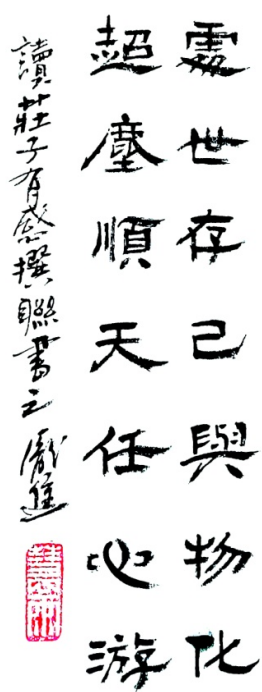 處世存己與物化
超塵順天任心游
讀莊子有感撰聯書之 龐進